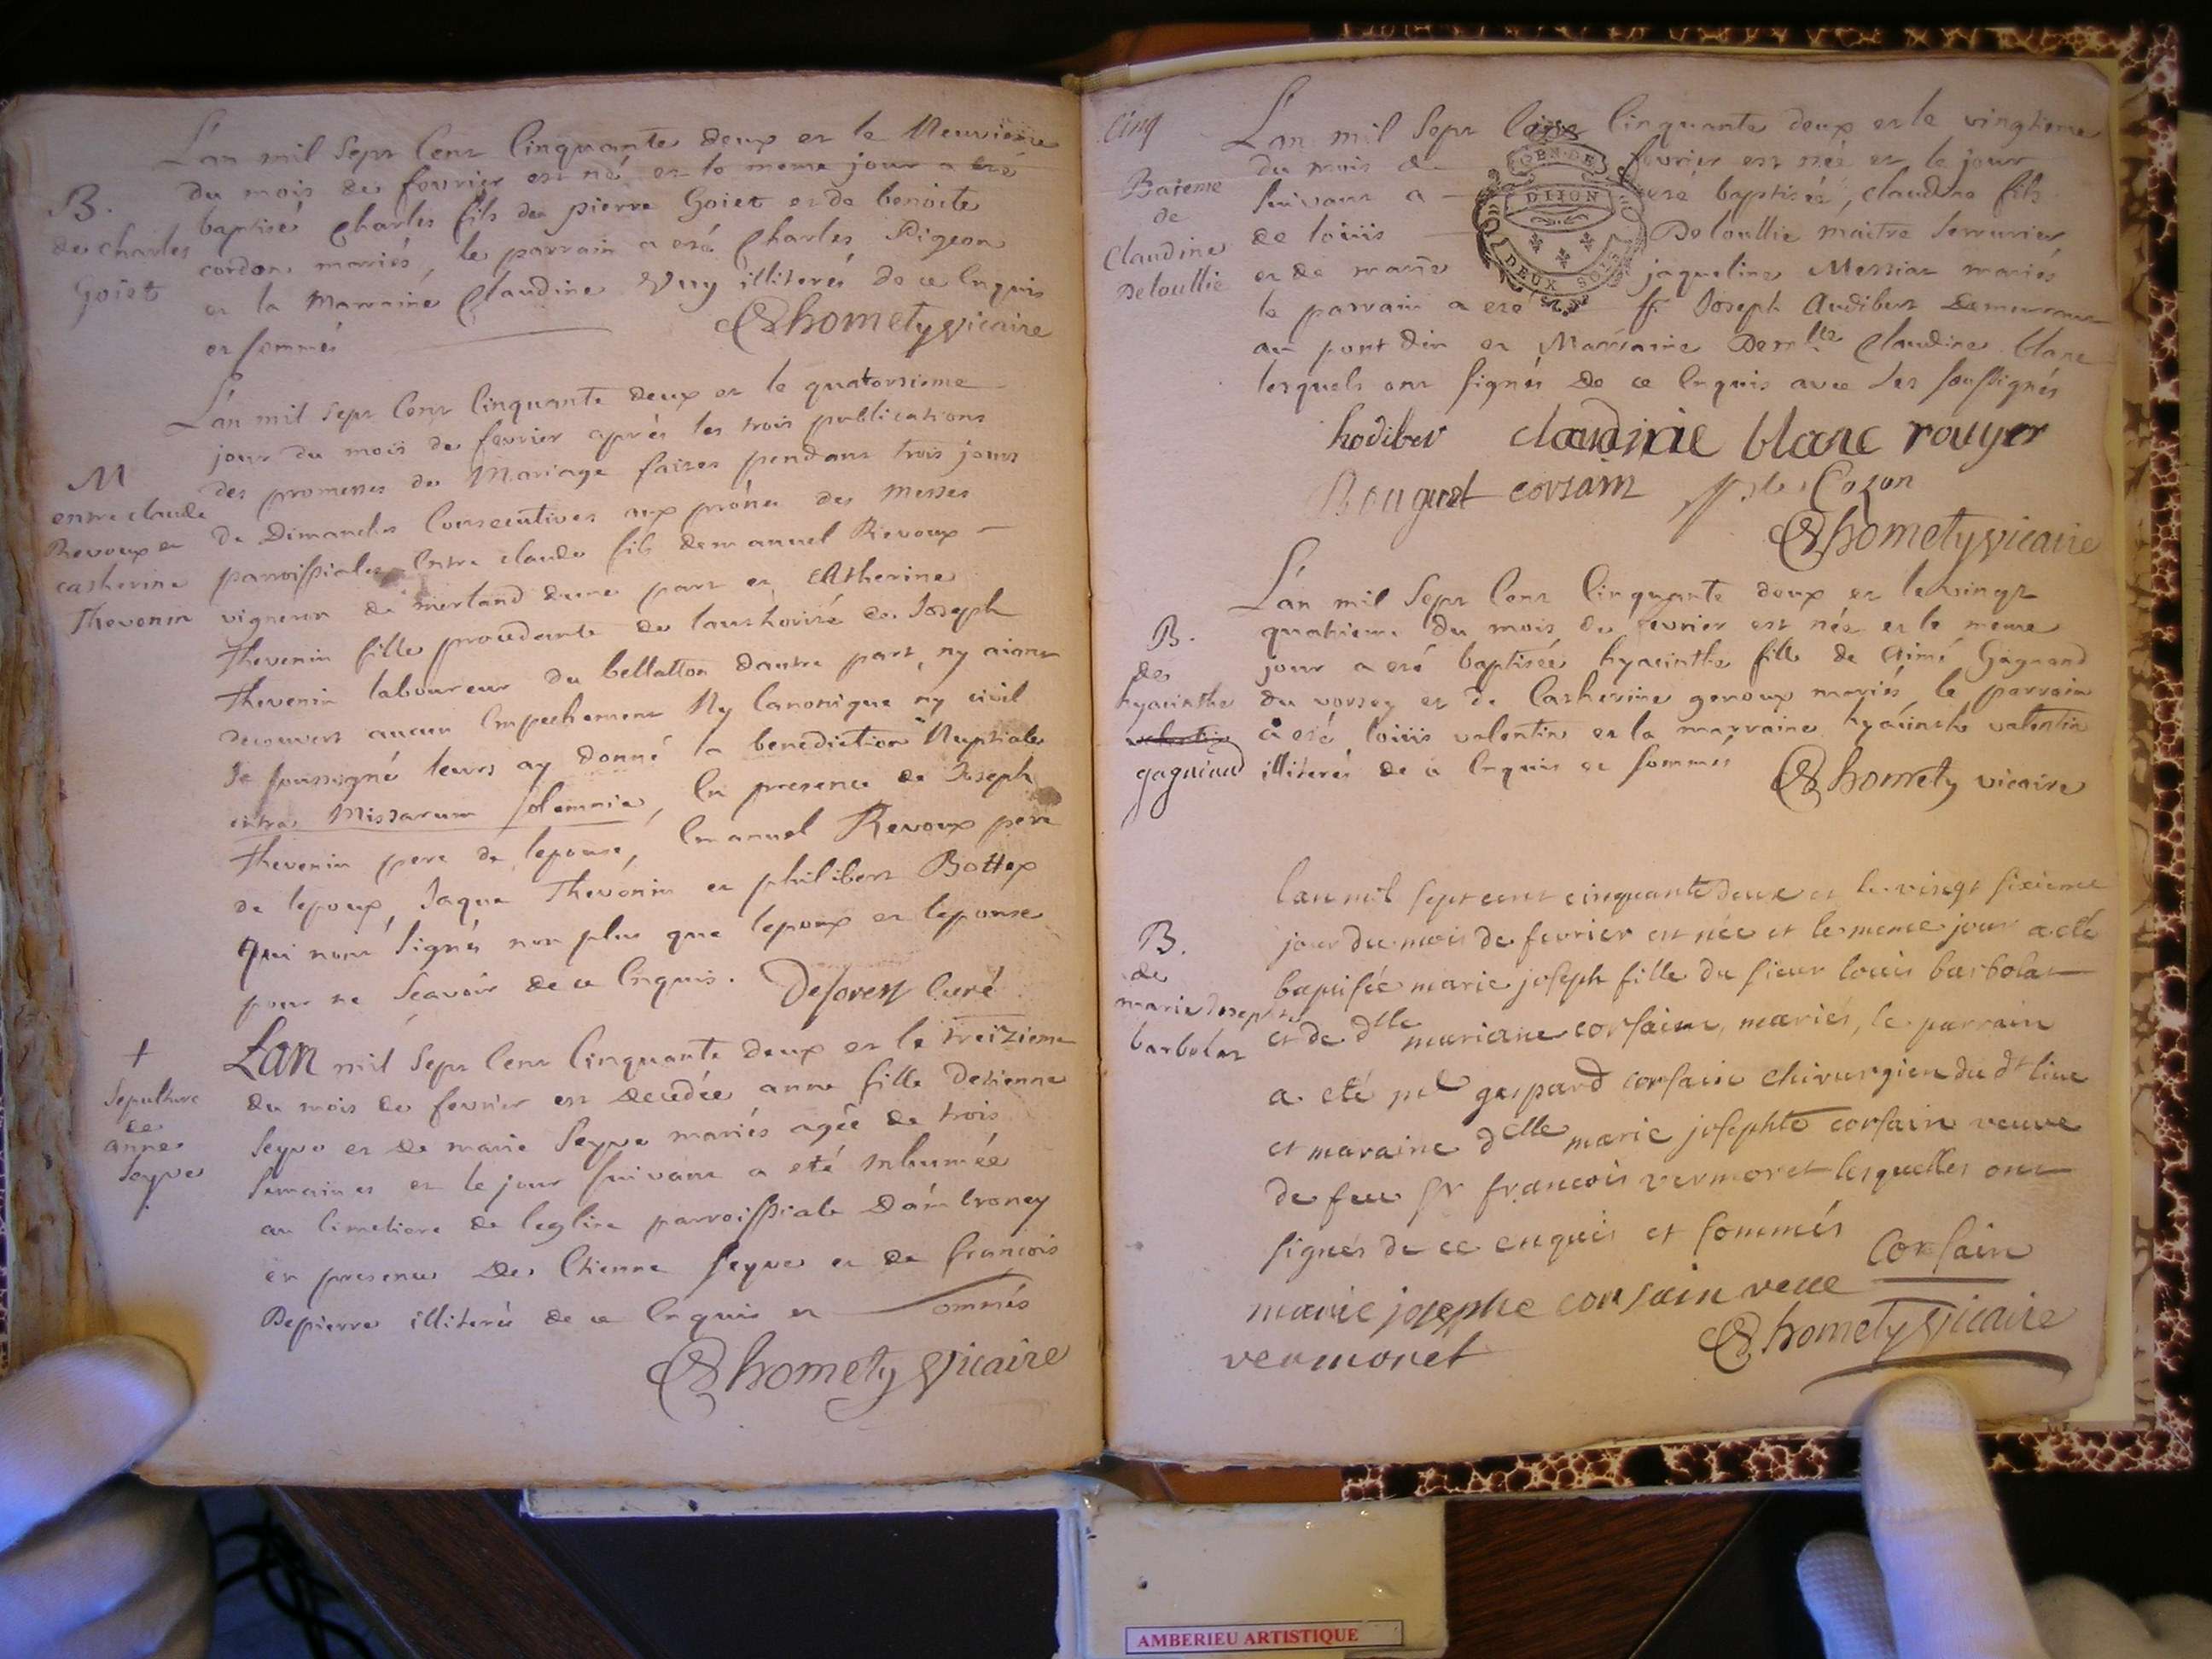 L'an mil Sept Cent Cinquante deux et le Neuvieme
du mois de fevrier est né et le meme jour a eté
B.
baptisé Charles fils de pierre Goiet et de benoite
de charles
cordon mariés, le parrain a eté Charles Pigeon
Goiet
et la Marraine Claudine Vuy illiterés de ce Enquis
et sommés
Rhomety vicaire
L'an mil Sept Cent Cinquante deux et le quatorsieme
jour du mois de fevrier aprés les trois publications
M
des promesses de Mariage faites pendant trois jours
entre claude
de Dimanches Consecutives aux prônes des Messes
Revoux et
parroissiales Entre claude fils demanuel Revoux
catherine
vigneron de mertand dune part et Catherine
Thevenin
Thevenin fille procedante de lauthorité de Joseph
Thevenin laboureur du bellatton dautre part, ny aiant
decouvert aucun Empechement Ny Canonique ny civil
Je soussigné leurs ay donné la benediction Nuptiale
intra Missarum solemnia, En presence de Joseph
Thevenin pere de lepouse, Emanuel Revoux pere
de lepoux, Jaque Thevenin et philibert Bottex
Qui nont signés non plus que lepoux et lepouse
pour ne Scavoir de ce Enquis. Deforest Curé
†
Lan mil Sept Cent Cinquante deux et le treizieme
Sepulture
du mois de fevrier est decedée anne fille detienne
de
anne
Seyve et de marie Seyve mariés agée de trois
Seyve
semaines et le jour suivant a eté inhumée
au Cimetiere de leglise parroissiale Dambroney
en presence de Etienne Seyve et de francois
Depierre illiterés de ce Enquis et Sommés
Rhomety Vicaire
Cinq
L'an mil Sept Cent Cinquante deux et le vingtieme
du mois de fevrier est née et le jour
GEN. DE
DIJON
DEUX SOLS
Bateme
suivant a eté baptisée, claudine fils
de
de loüis Deloullie maitre serrurier
Claudine
et de marie jaqueline Messiat mariés
Deloullie
le parrain a eté sr Joseph Audibert Demeurant
au pont din et Marraine Demlle Claudine blanc
lesquels ont signés de ce Enquis avec Les soussignés
hodiber claudine blanc rouyer
Bouguet corsain Cozon
Rhomety vicaire
L'an mil Sept Cent Cinquante deux et le vingt
B.
quatrieme du mois de fevrier est née et le meme
de
jour a eté baptisée hyacinthe fille de Aimé Gagnand
hyacinthe
du vorsey et de Catherine genoux mariés le parrain
valentin
a eté loüis valentin et la marraine hyacinthe valentin
gagniand
illiterés de ce Enquis et sommés
Rhomety vicaire
lan mil sept cent cinquante deux et le vingt sixieme
B.
jour du mois de fevrier est née et le meme jour a eté
de
baptisée marie joseph fille du sieur louis barbolat
marie Josephte
et de dlle mariane corsain, mariés, le parrain
barbolat
a eté mr gaspard corsain chirurgien du dt lieu
et maraine delle marie josephte corsain veuve
de feu sr francois vermoret lesquelles ont
signés de ce enquis et sommés
Corsain
marie josephe corsain veve
vermoret
Rhomety Vicaire
AMBERIEU ARTISTIQUE